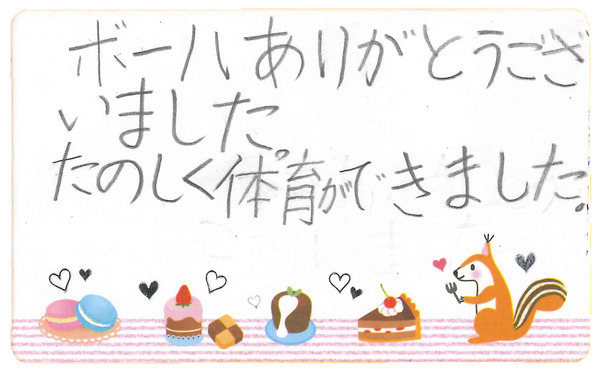 ボールありがとうござ
いました。
たのしく体育ができました。